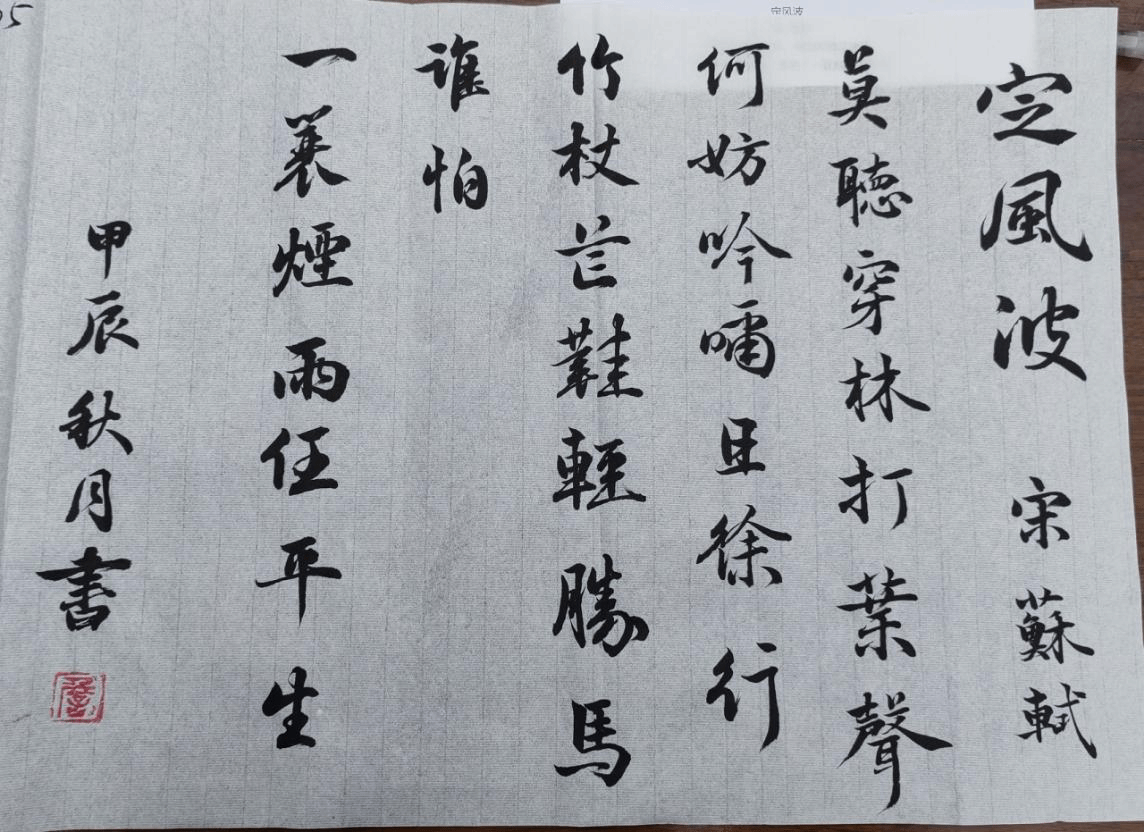 定風波 宋 蘇軾
莫聽穿林打葉聲
何妨吟嘯且徐行
竹杖芒鞋輕勝馬
誰怕
一蓑煙雨任平生
甲辰秋月書
定风波
05